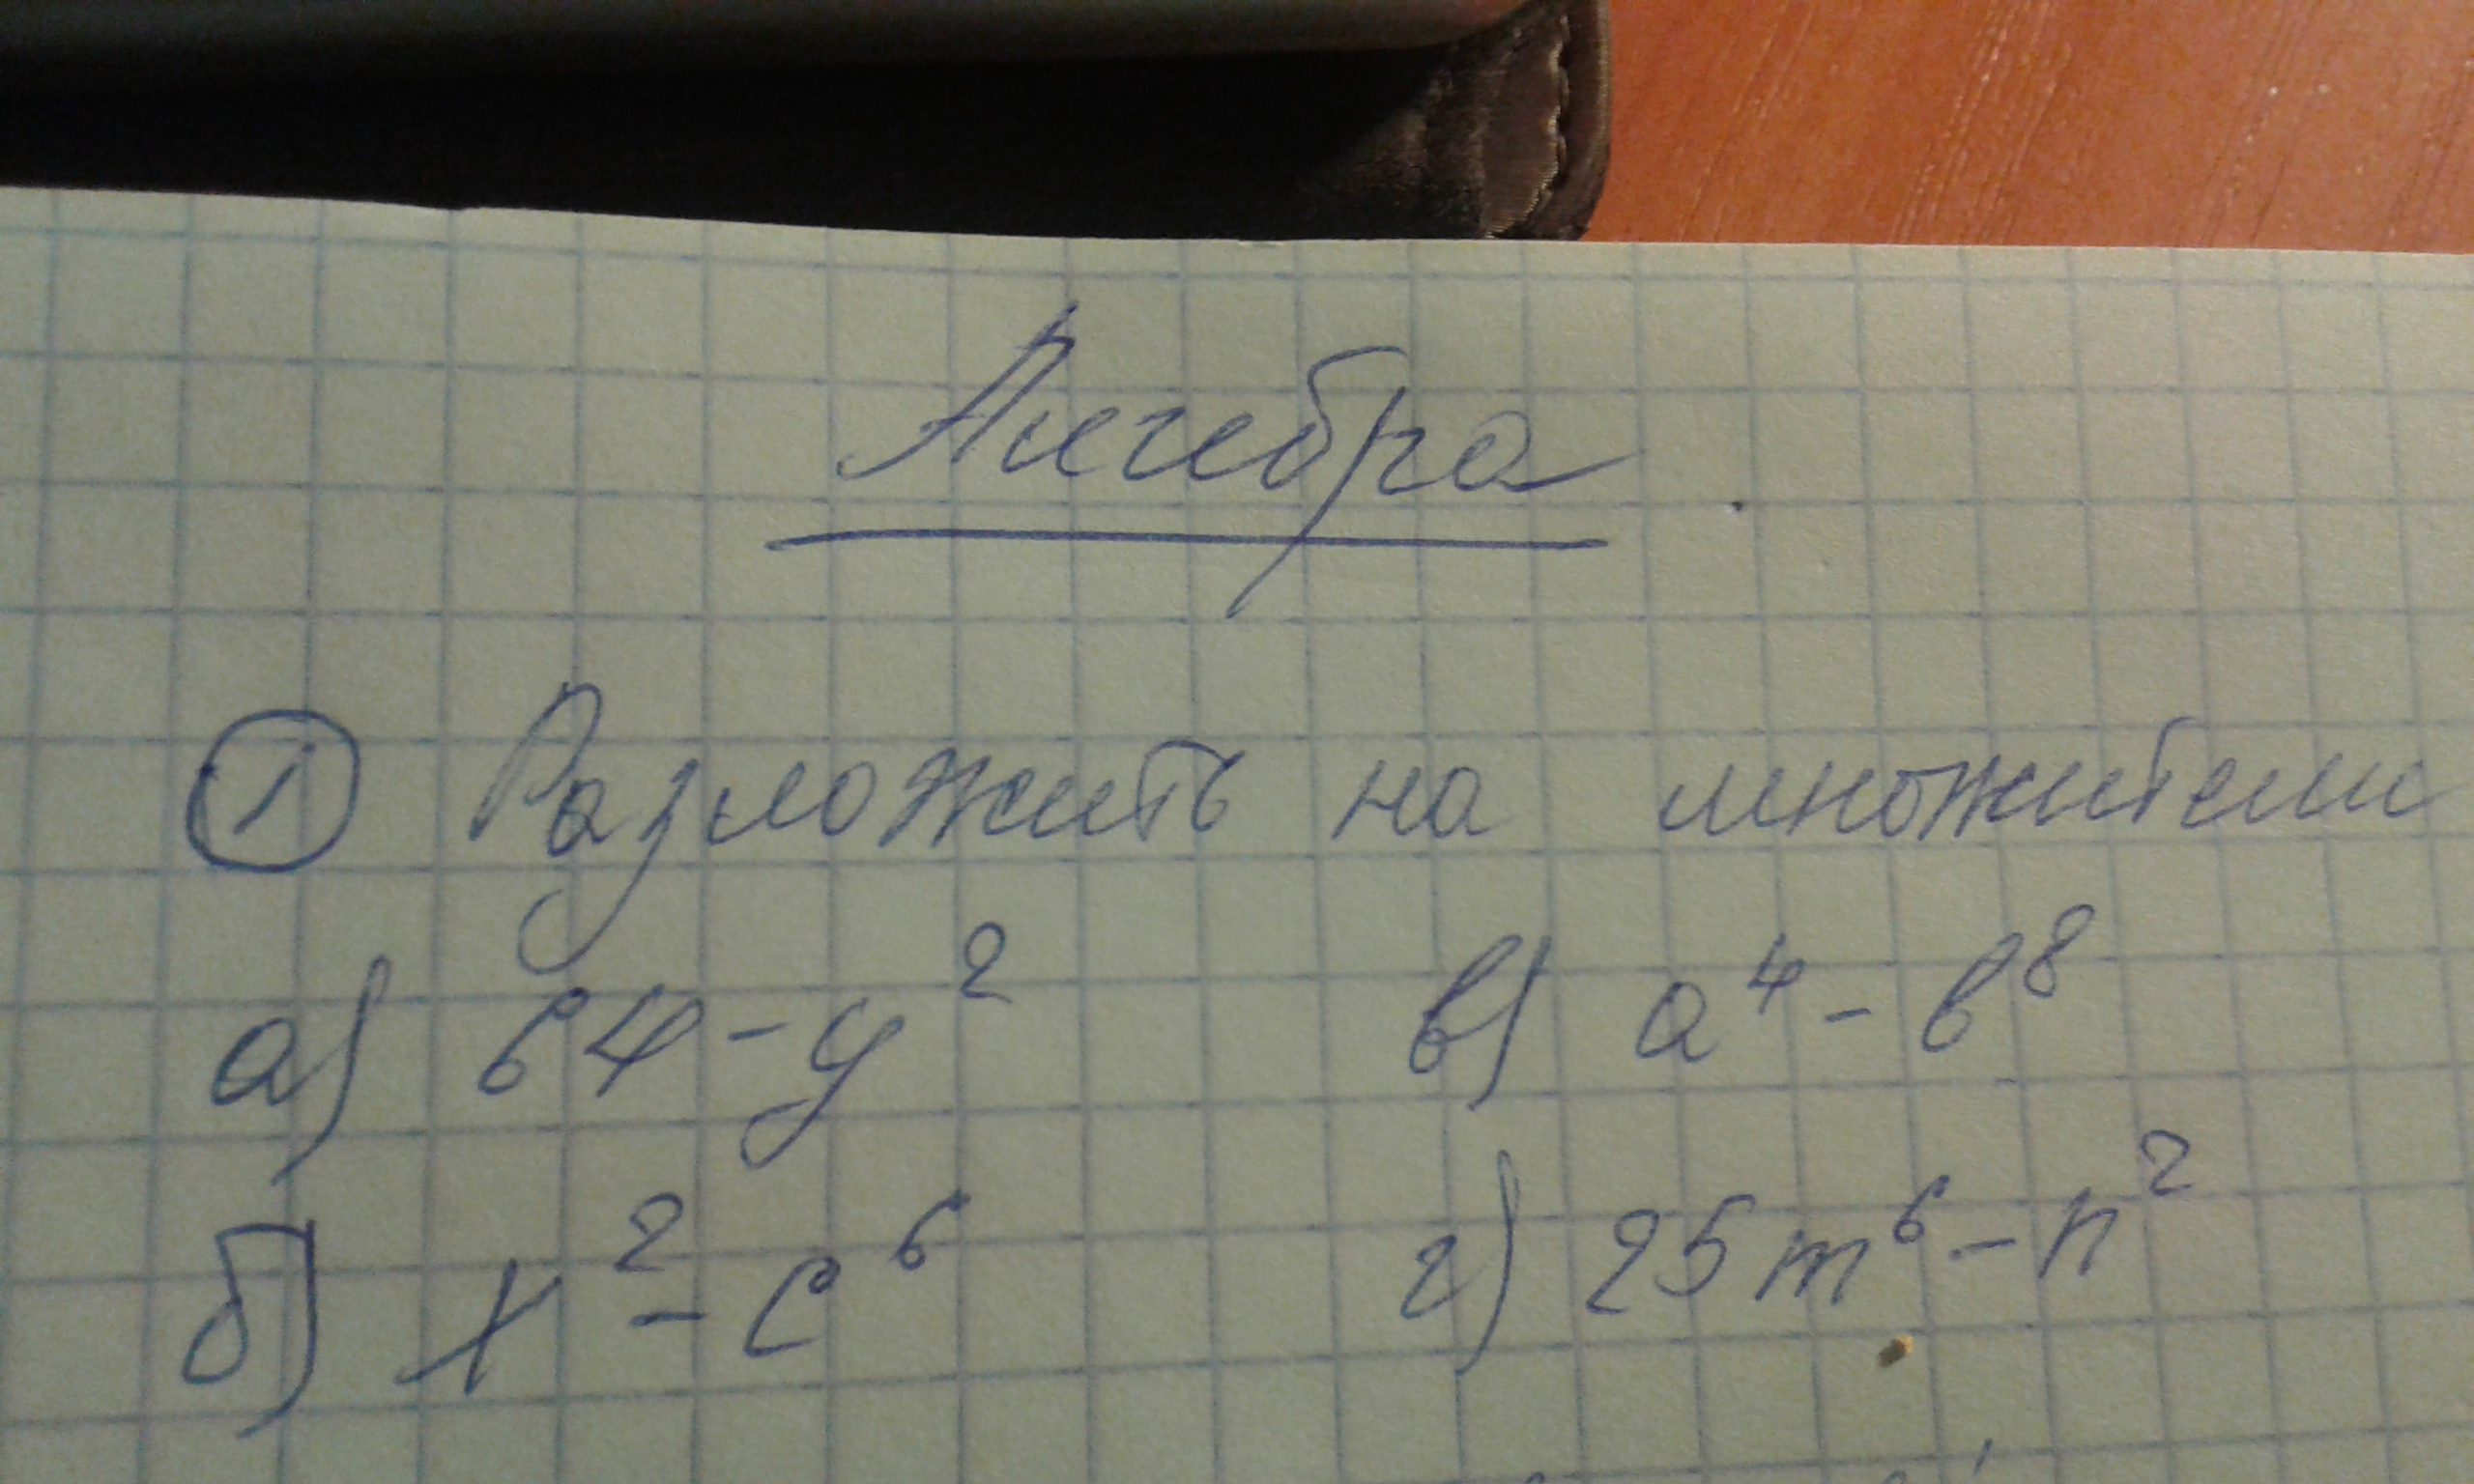 Алгебра
① Разложить на множители
а) 64 - y² в) a⁴ - b⁸
б) x² - c⁶ г) 25m⁶ - n²